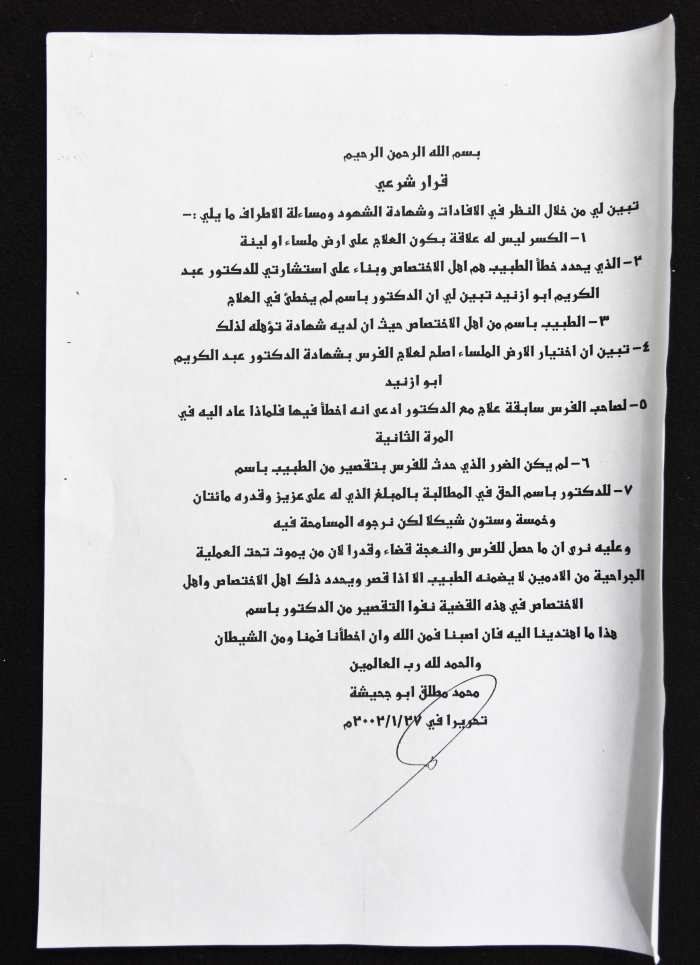 بسم الله الرحمن الرحيم
قرار شرعي
تبين لي من خلال النظر في الافادات وشهادة الشهود ومساءلة الاطراف ما يلي :-
١- الكسر ليس له علاقة بكون العلاج على ارض ملساء او لينة
٢- الذي يحدد خطأ الطبيب هم اهل الاختصاص وبناء على استشارتي للدكتور عبد
الكريم ابو ازنيد تبين لي ان الدكتور باسم لم يخطئ في العلاج
٣- الطبيب باسم من اهل الاختصاص حيث ان لديه شهادة تؤهله لذلك
٤- تبين ان اختيار الارض الملساء اصلح لعلاج الفرس بشهادة الدكتور عبد الكريم
ابو ازنيد
٥- لصاحب الفرس سابقة علاج مع الدكتور ادعى انه اخطأ فيها فلماذا عاد اليه في
المرة الثانية
٦- لم يكن الضرر الذي حدث للفرس بتقصير من الطبيب باسم
٧- للدكتور باسم الحق في المطالبة بالمبلغ الذي له على عزيز وقدره مائتان
وخمسة وستون شيكلا لكن نرجوه المسامحة فيه
وعليه نرى ان ما حصل للفرس والنعجة قضاء وقدرا لان من يموت تحت العملية
الجراحية من الادمين لا يضمنه الطبيب الا اذا قصر ويحدد ذلك اهل الاختصاص واهل
الاختصاص في هذه القضية نفوا التقصير من الدكتور باسم
هذا ما اهتدينا اليه فان اصبنا فمن الله وان اخطأنا فمنا ومن الشيطان
والحمد لله رب العالمين
محمد مطلق ابو جحيشة
تحريرا في ٢٠٠٢/١/٢٧م